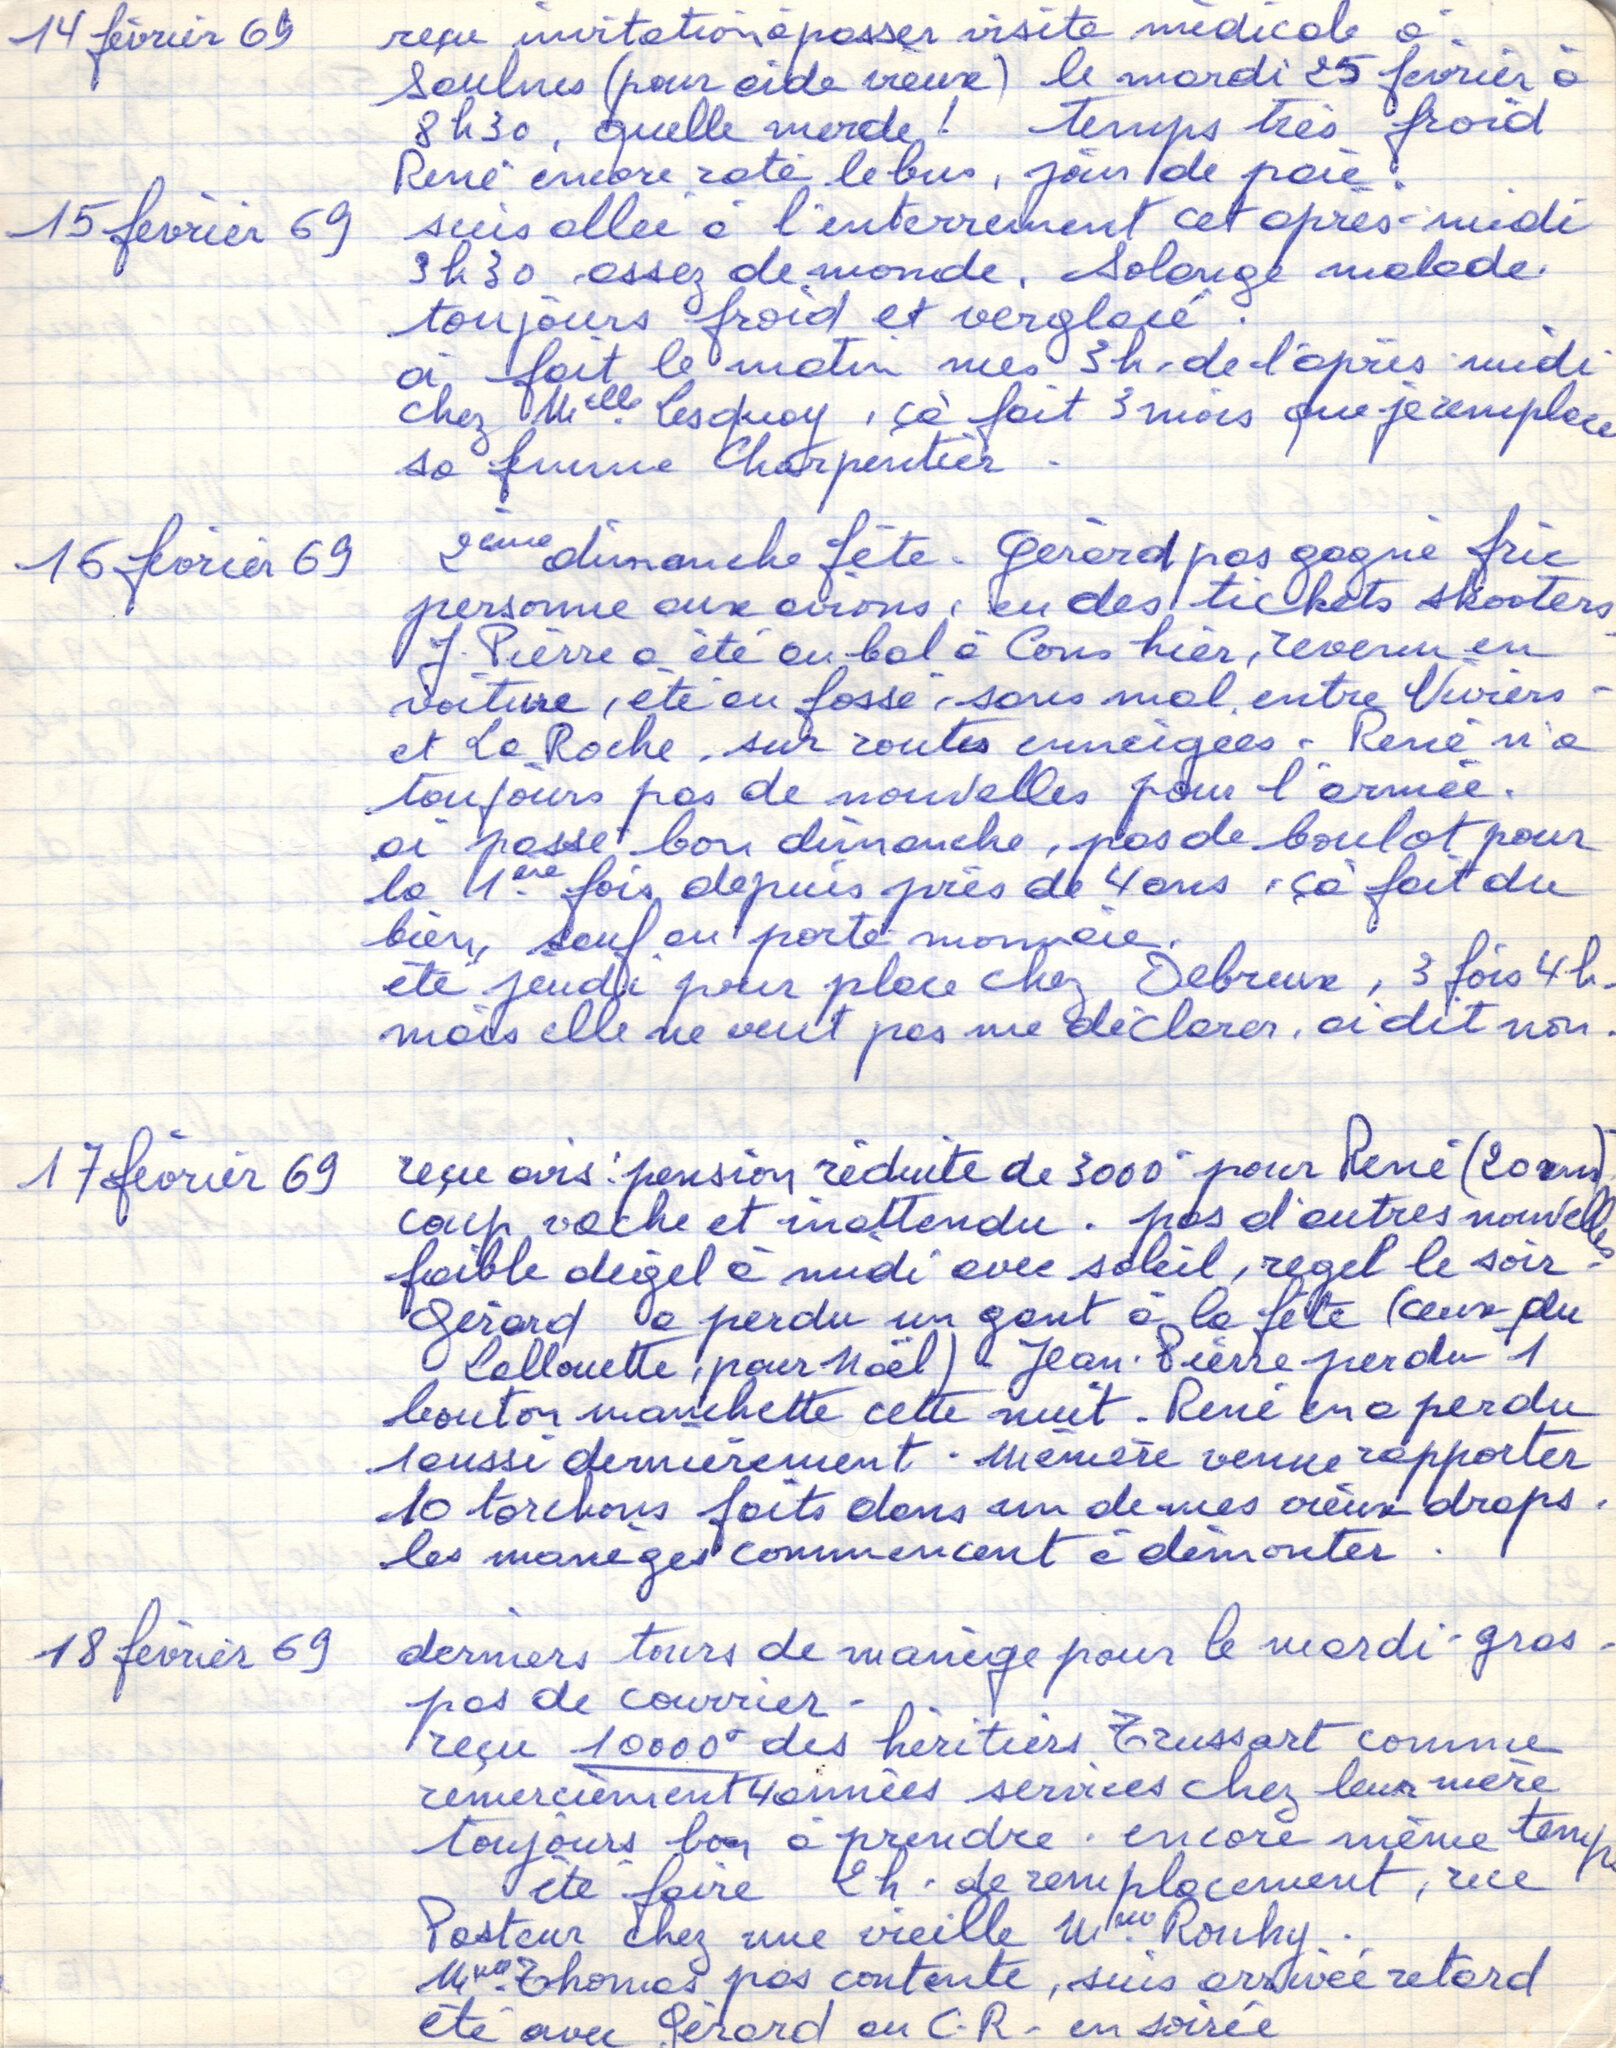 14 février 69 reçu invitation à passer visite médicale à
Saulnes (pour aide vieux) le mardi 25 février à
8h30, quelle merde ! temps très froid
René encore raté le bus, jour de paie.
15 février 69 suis allée à l'enterrement cet après-midi
3h30 assez de monde. Solange malade.
toujours froid et verglacé.
ai fait le matin mes 3h. de l'après-midi
chez Melle Lesquoy, çà fait 3 mois que je remplace
sa femme Charpentier.
16 février 69 2ème dimanche fête. Gérard pas gagné fric
personne aux avions, eu des tickets skooters
J. Pierre a été au bal à Cons hier, revenu en
voiture, été au fossé, sans mal, entre Viviers
et La Roche, sur routes enneigées. René n'a
toujours pas de nouvelles pour l'armée.
ai passé bon dimanche, pas de boulot pour
la 1ère fois depuis près de 4 ans, çà fait du
bien, sauf au porte monnaie.
été jeudi pour place chez Debreux, 3 fois 4h.
mais elle ne veut pas me déclarer, ai dit non.
17 février 69 reçu avis : pension réduite de 3000 pour René (20 ans)
coup vache et inattendu. pas d'autres nouvelles
faible dégel à midi avec soleil, regel le soir.
Gérard a perdu un gant à la fête (ceux du
Lallouette, pour Noël). Jean-Pierre perdu 1
bouton manchette cette nuit. René en a perdu
1 aussi dernièrement. Mémère venue rapporter
10 torchons faits dans un de mes vieux draps.
les manèges commencent à démonter.
18 février 69 derniers tours de manège pour le mardi-gras.
pas de courrier.
reçu 10000 des héritiers Trussart comme
remerciement 4 années services chez leur mère
toujours bon à prendre. encore même temps
été faire 2h. de remplacement, rue
Pasteur chez une vieille Mme Rouhy.
Mme Thomas pas contente, suis arrivée retard
été avec Gérard au C.R. en soirée